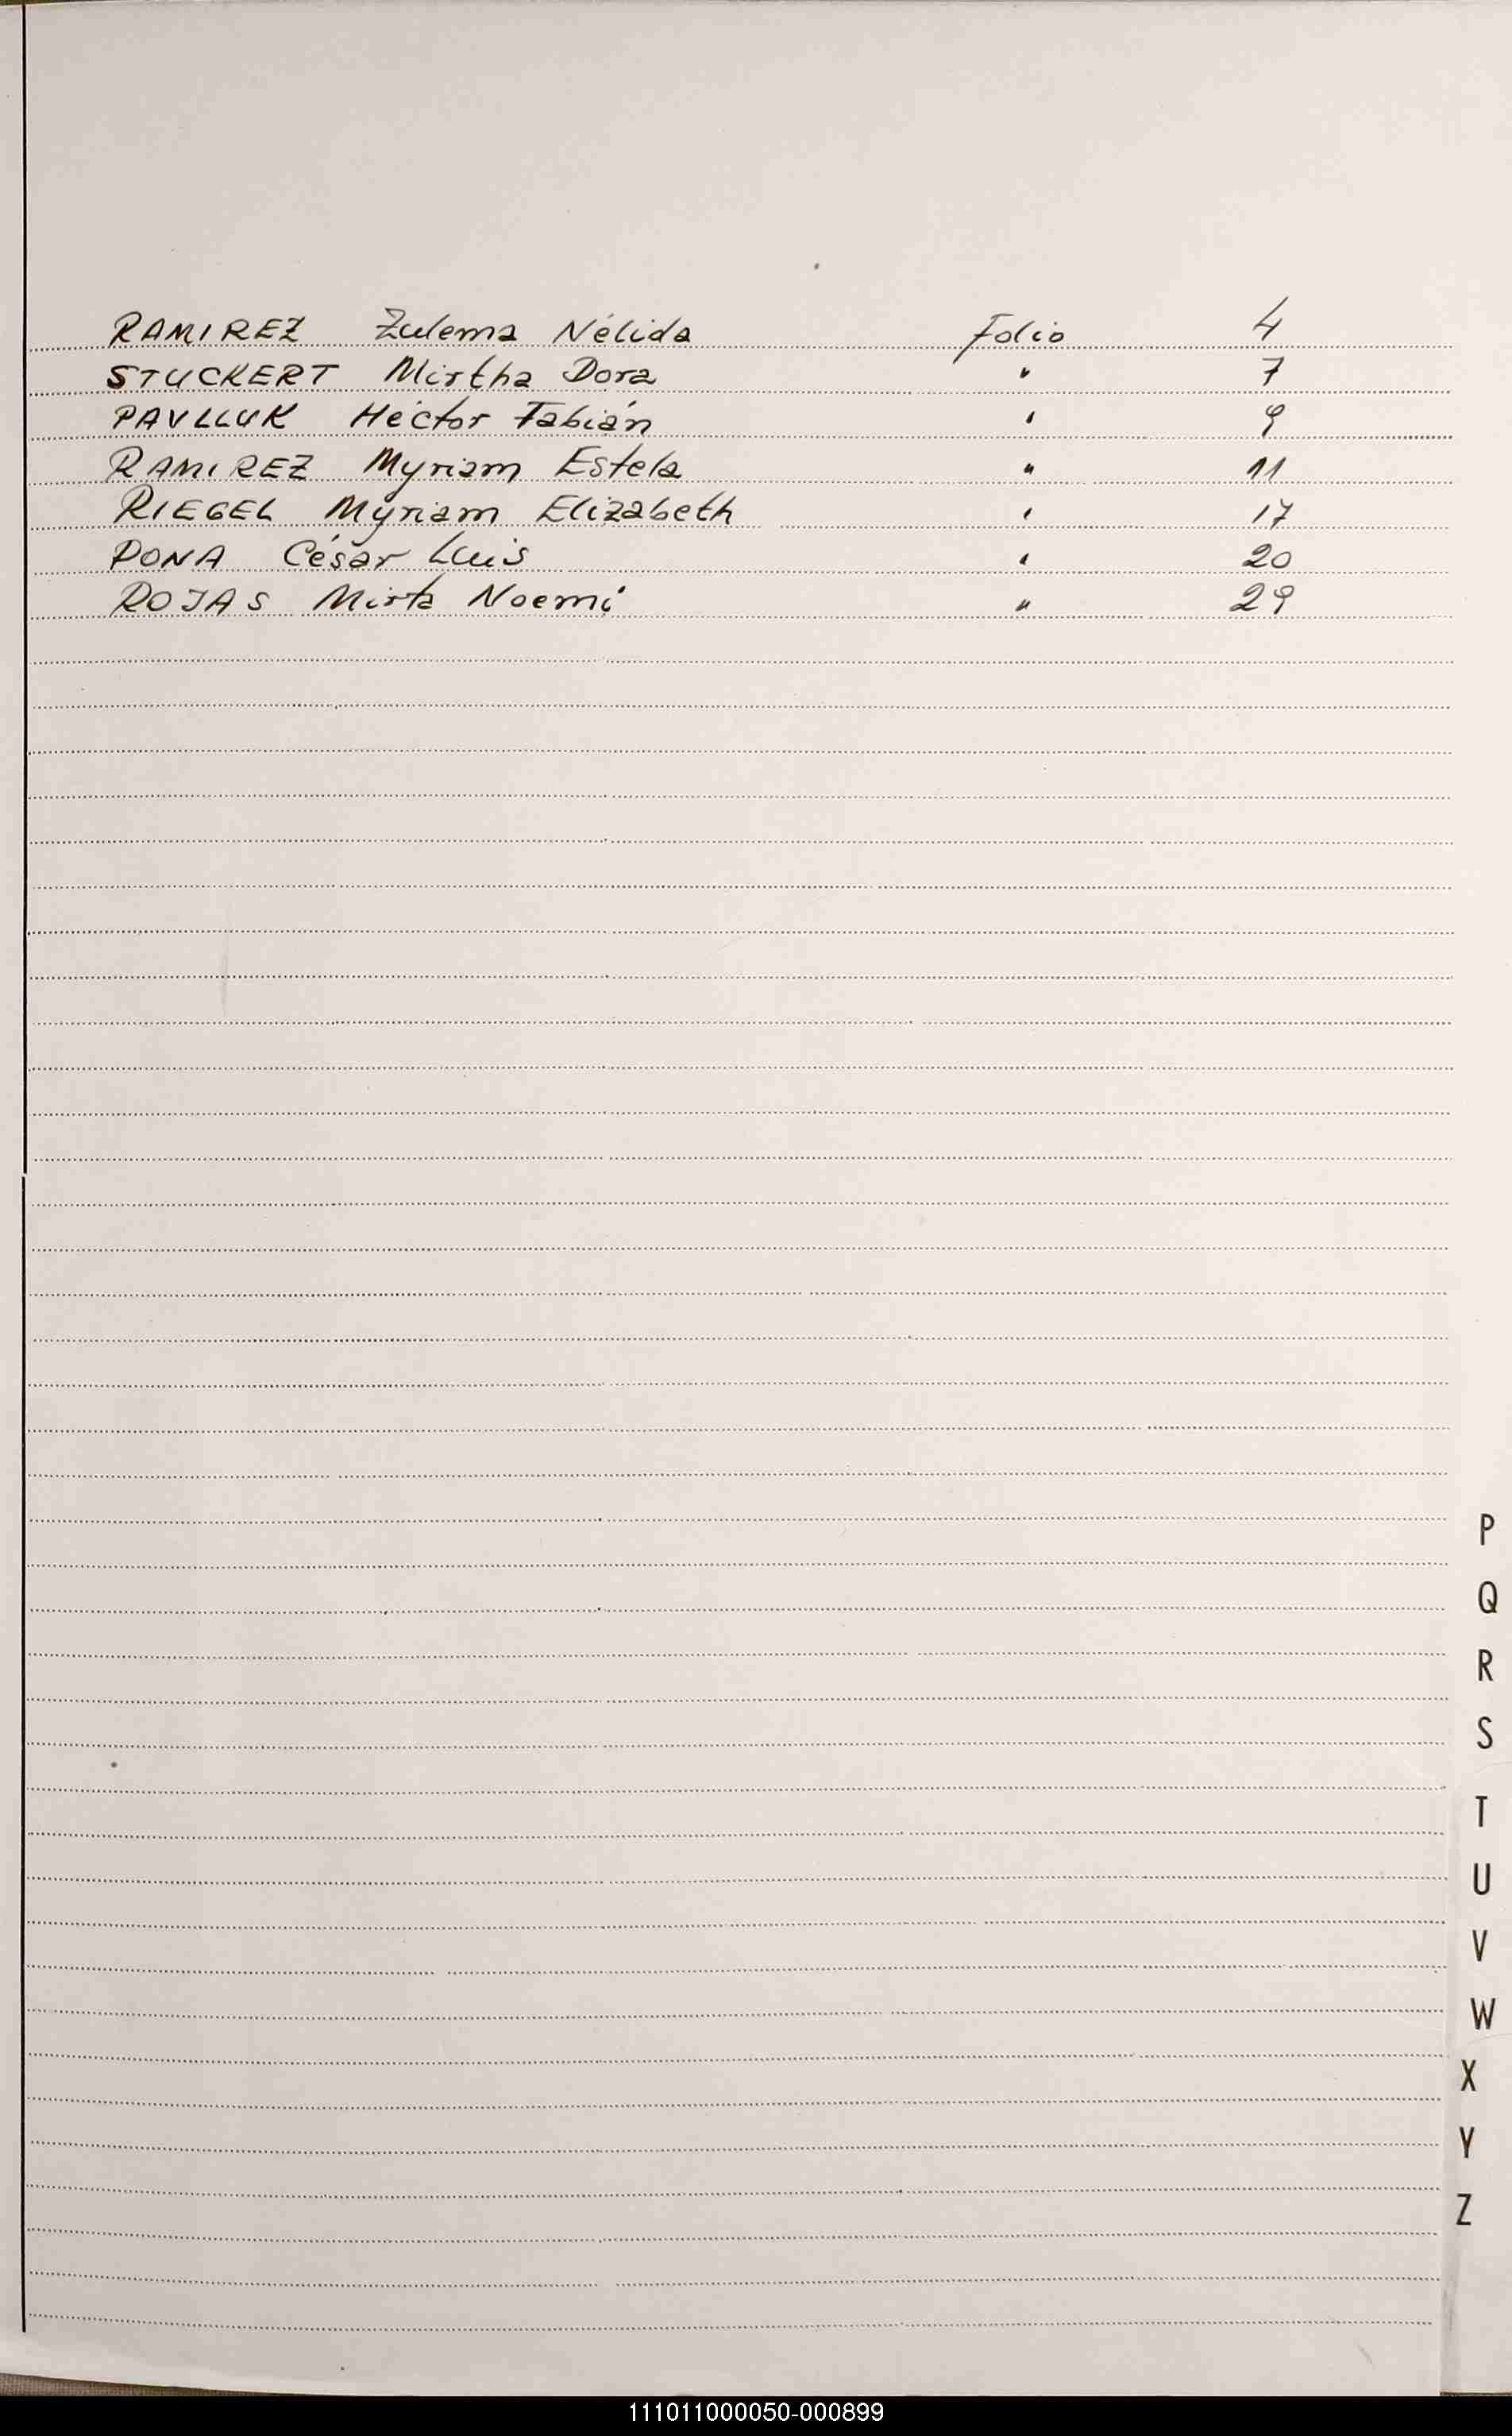 RAMIREZ Zulema Nélida Folio 4
STUCKERT Mirtha Dora " 7
PAVLLUK Héctor Fabián " 9
RAMIREZ Myriam Estela " 11
RIEGEL Myriam Elizabeth " 17
PONA César Luis " 20
ROJAS Mirta Noemí " 29
P
Q
R
S
T
U
V
W
X
Y
Z
111011000050-000899